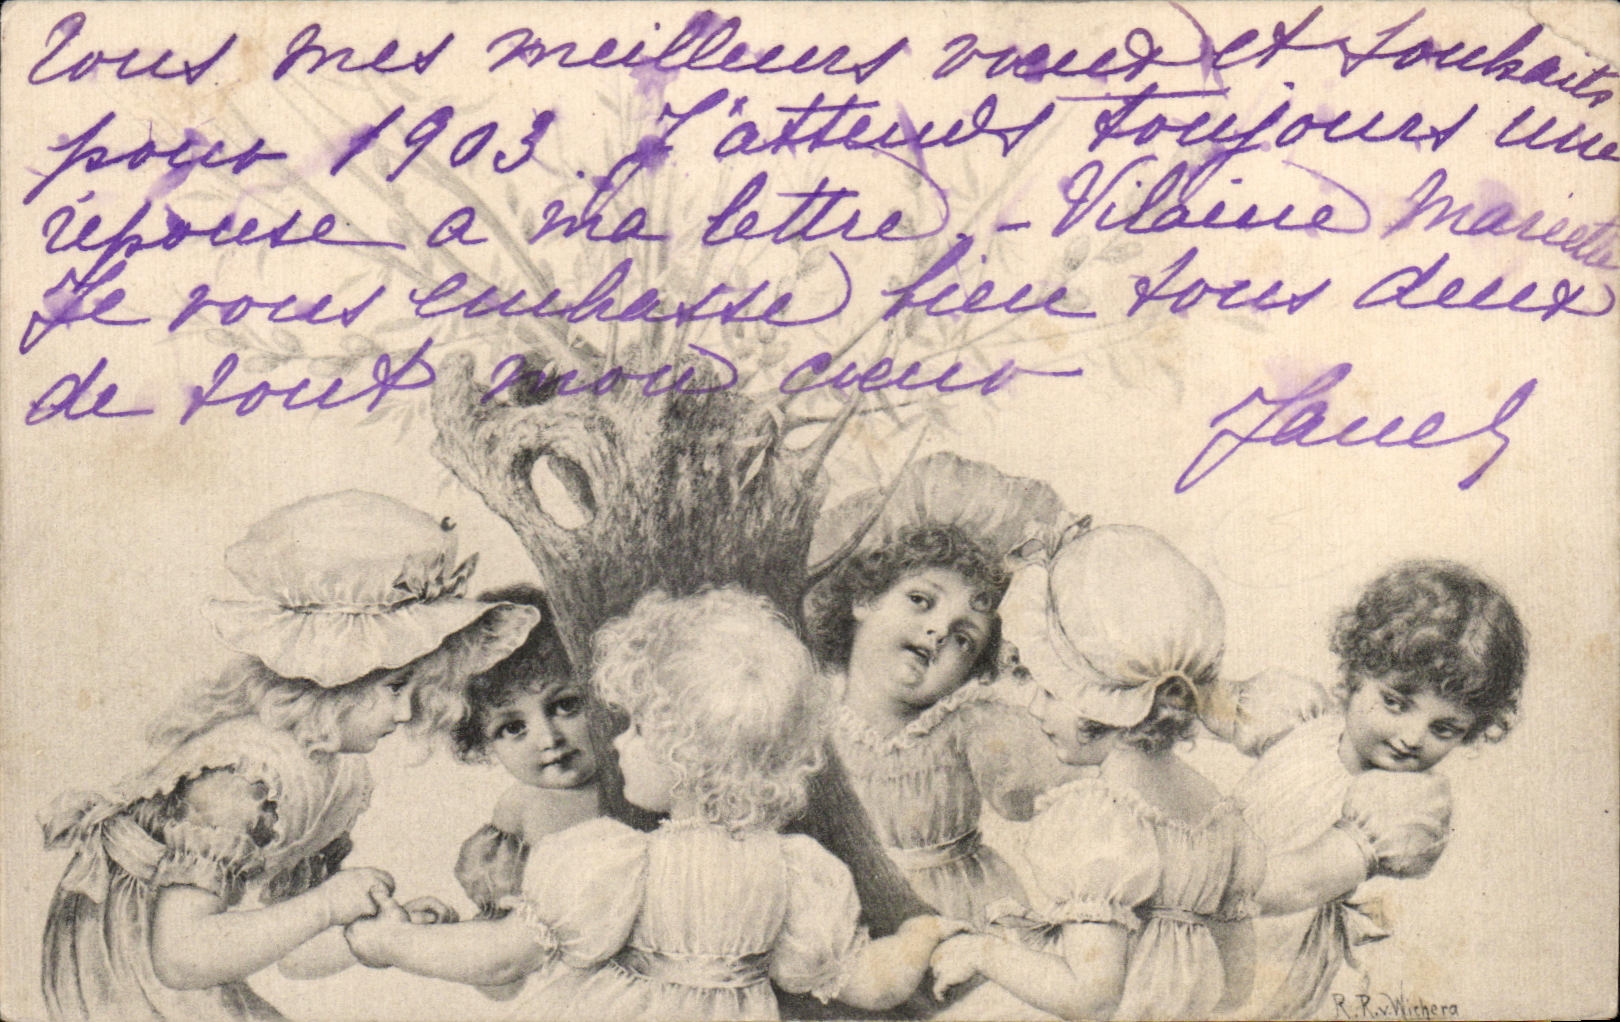 Tous mes meilleurs vœux et souhaits
pour 1903. J'attends toujours une
réponse a ma lettre. - Vilaine Mariette
Je vous embrasse bien tous deux
de tout mon cœur
R.R.v.Wichera